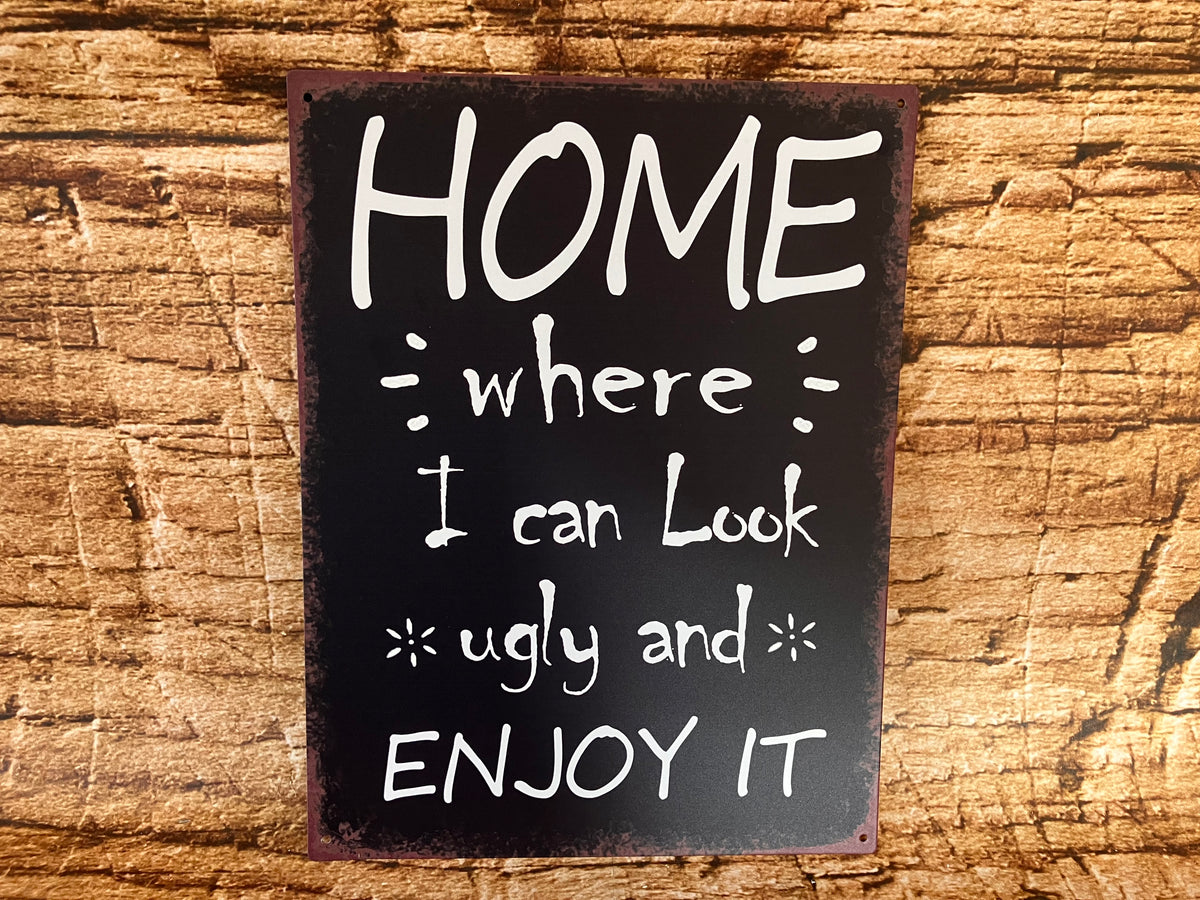 HOME
where
I can Look
ugly and
ENJOY IT